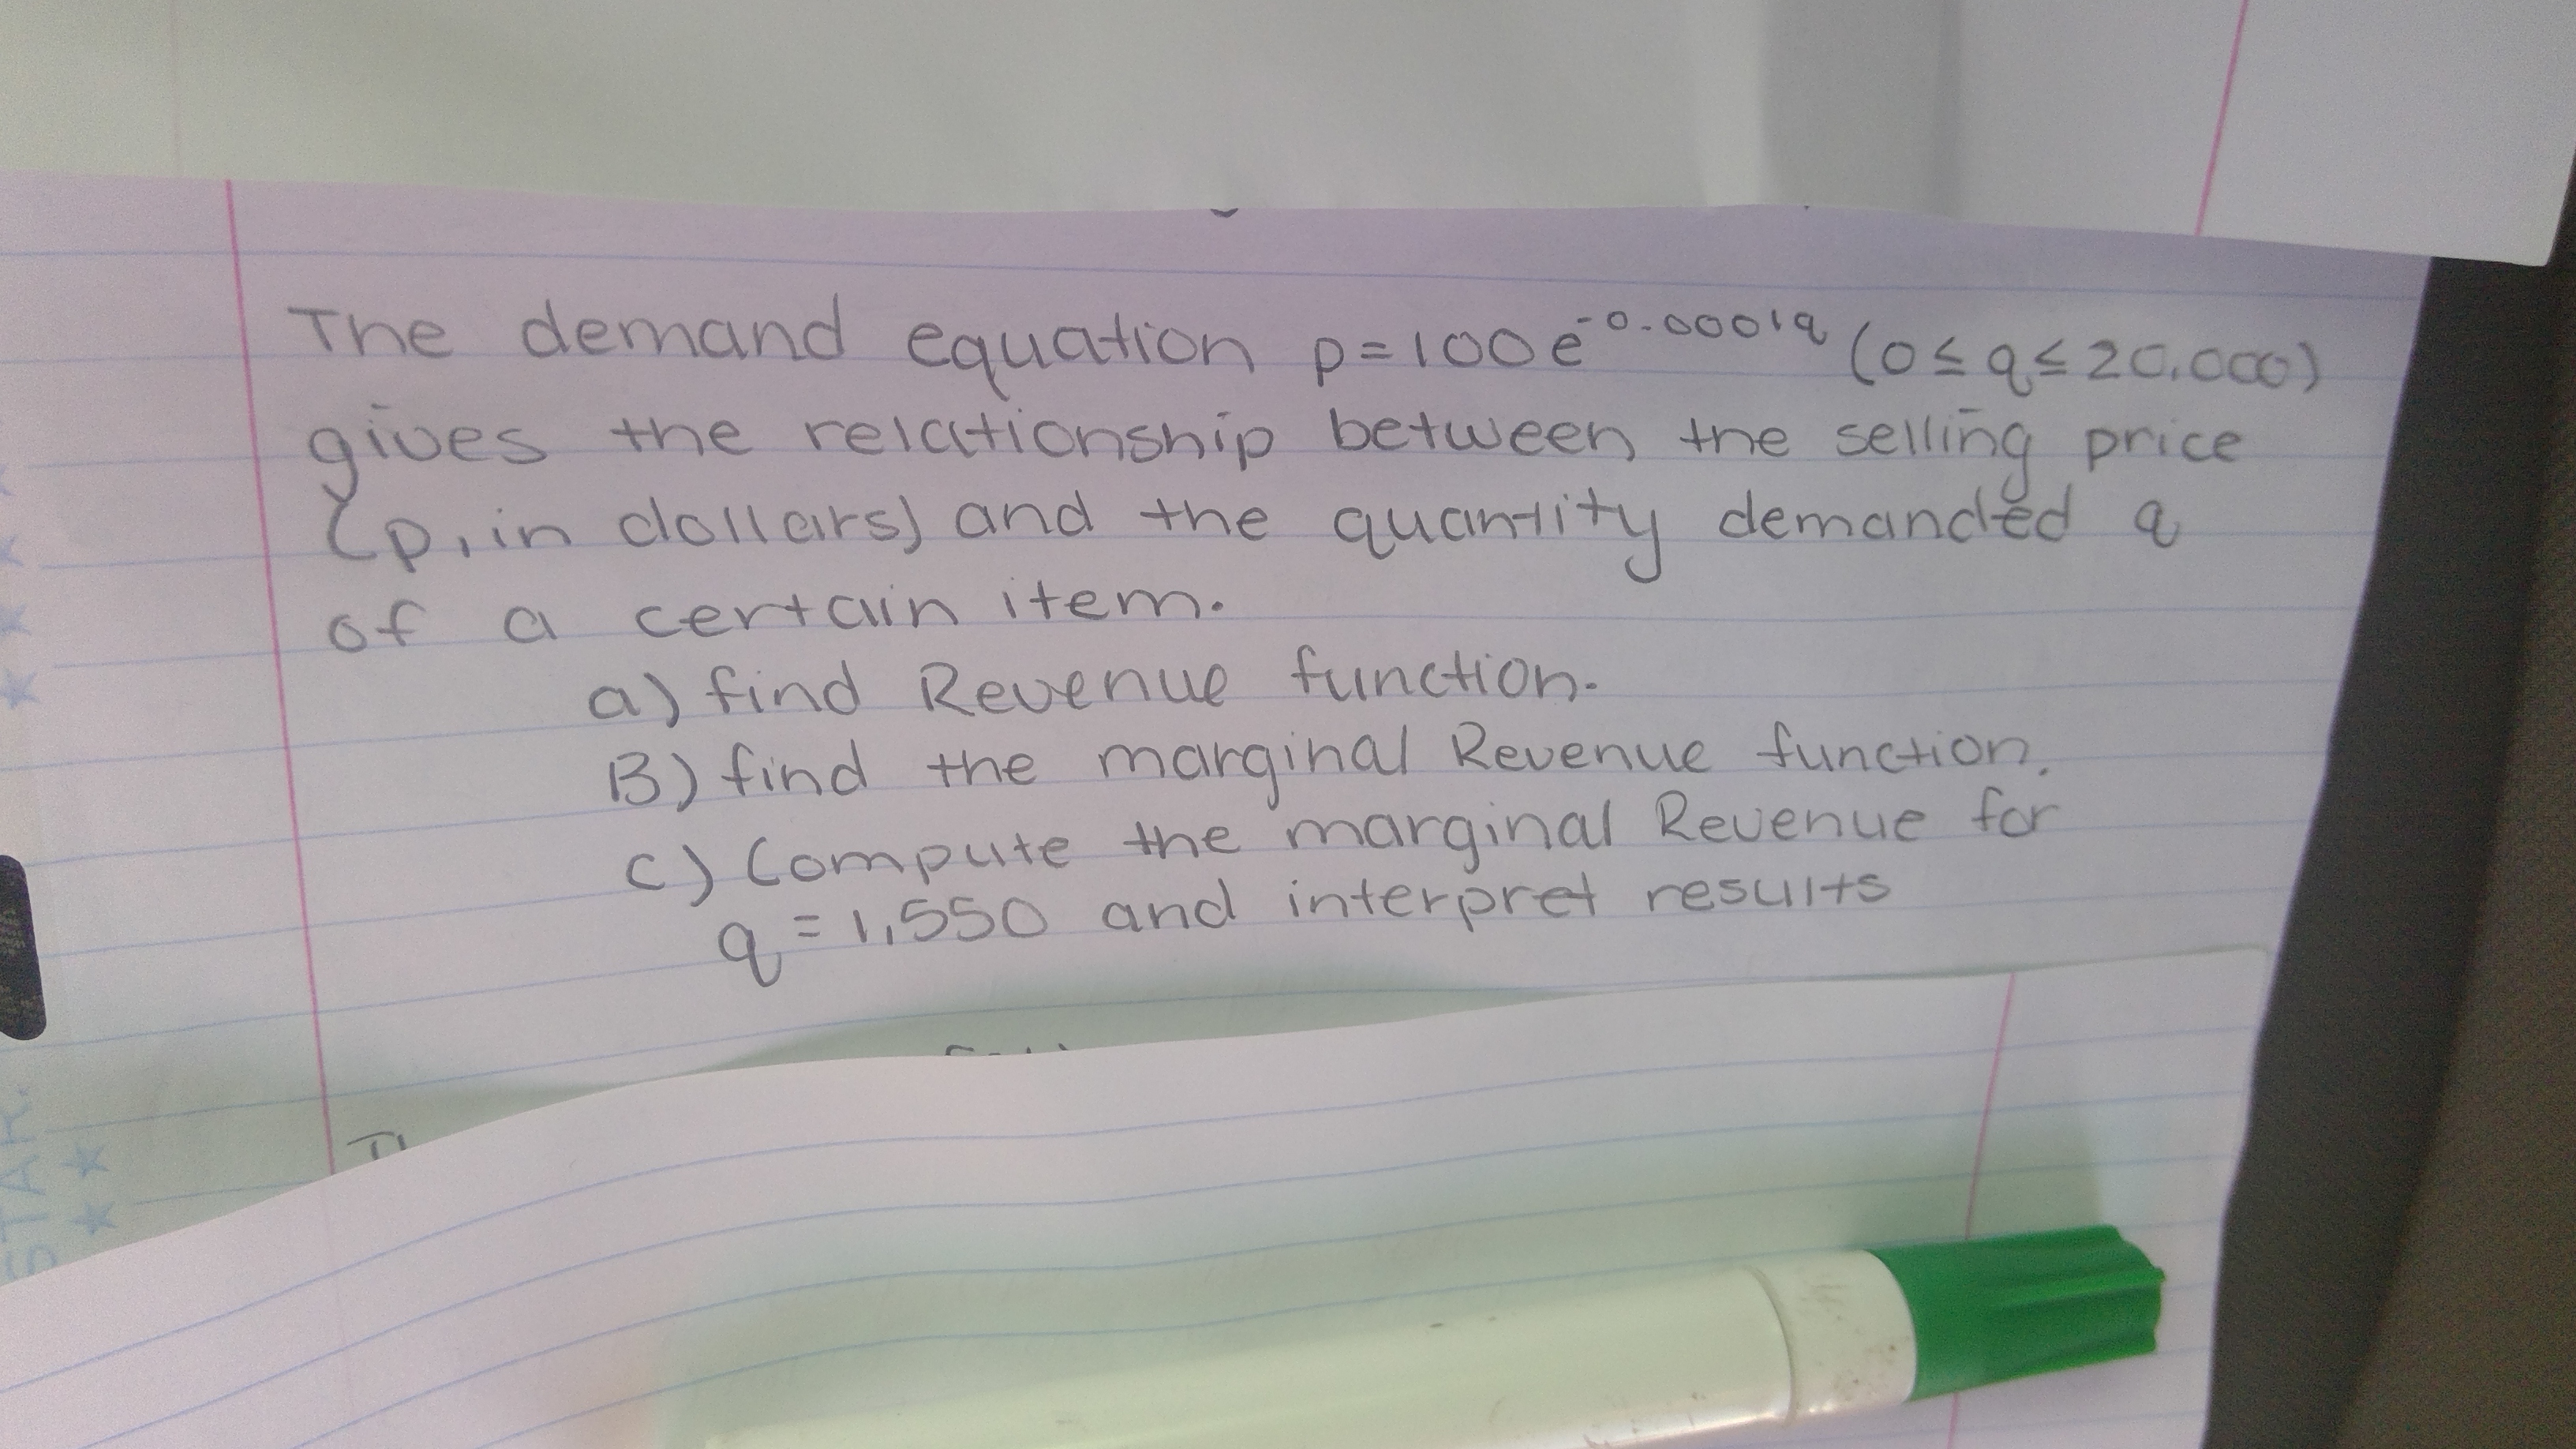 The demand equation p=100e^-0.0001q (0≤q≤20,000)
gives the relationship between the selling price
(p, in dollars) and the quantity demanded q
of a certain item.
a) find Revenue function.
B) find the marginal Revenue function.
c) Compute the marginal Revenue for
q=1,550 and interpret results
STAR.